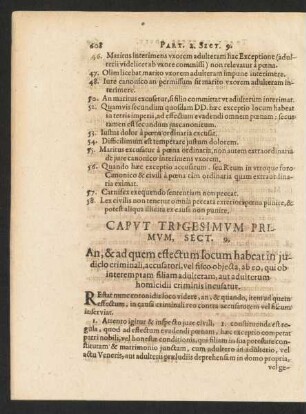 608 PART. 2. SECT. 9.
46. Maritus interimens vxorem adulteram hac Exceptione (adul-
terii videlicet ab vxore commissi) non releuatur à pœna.
47. Olim licebat marito vxorem adulteram impune interimere.
48. Iure canonico an permissum sit marito vxorem adulteram in-
terimere.
50. An maritus excusetur, si filio committat vt adulterum interimat.
52. Quamvis secundum quosdam DD. hæc exceptio locum habeat
in terris imperii, ad effectum euadendi omnem pœnam, secus
tamen est secundum ius canonicum.
53. Iustus dolor à pœna ordinaria excusat.
54. Difficilimum est temperare iustum dolorem.
55. Maritus excusatur à pœna ordinaria, non autem extraordinaria
de iure canonico interimens vxorem.
56. Quando hæc exceptio accusatorem, seu Reum in vtroque foro
Canonico & ciuili à pœna tàm ordinaria quam extraordina-
ria eximat.
57. Carnifex exequendo sententiam non peccat.
58. Lex ciuilis non tenetur omnia peccata exteriora pœna punire, &
potest aliqua illicita ex causa non punire.
CAPVT TRIGESIMVM PRI-
MVM, SECT. 9.
An, & ad quem effectum locum habeat in ju-
dicio criminali, accusatori, vel fisco objecta, ab eo, qui ob
interemptam filiam adulteram, aut adulterum
homicidii criminis incusatur.
REstat nunc enodandus loco videre, an, & quando, item ad quem
effectum, in causa criminali reo contra accusationem vel fiscum
inseruiat.
1. Attento igitur & inspecto jure ciuili, 1. constituenda est re-
gula, quod ad effectum euadendi pœnam, hæc exceptio competat
patri nobili, vel honestæ conditionis, qui filiam in sua potestate con-
stitutam & matrimonio junctam, cum adultero in adulterio, vel
actu Veneris, aut adulterii præludiis deprehensam in domo propria,
vel ge-